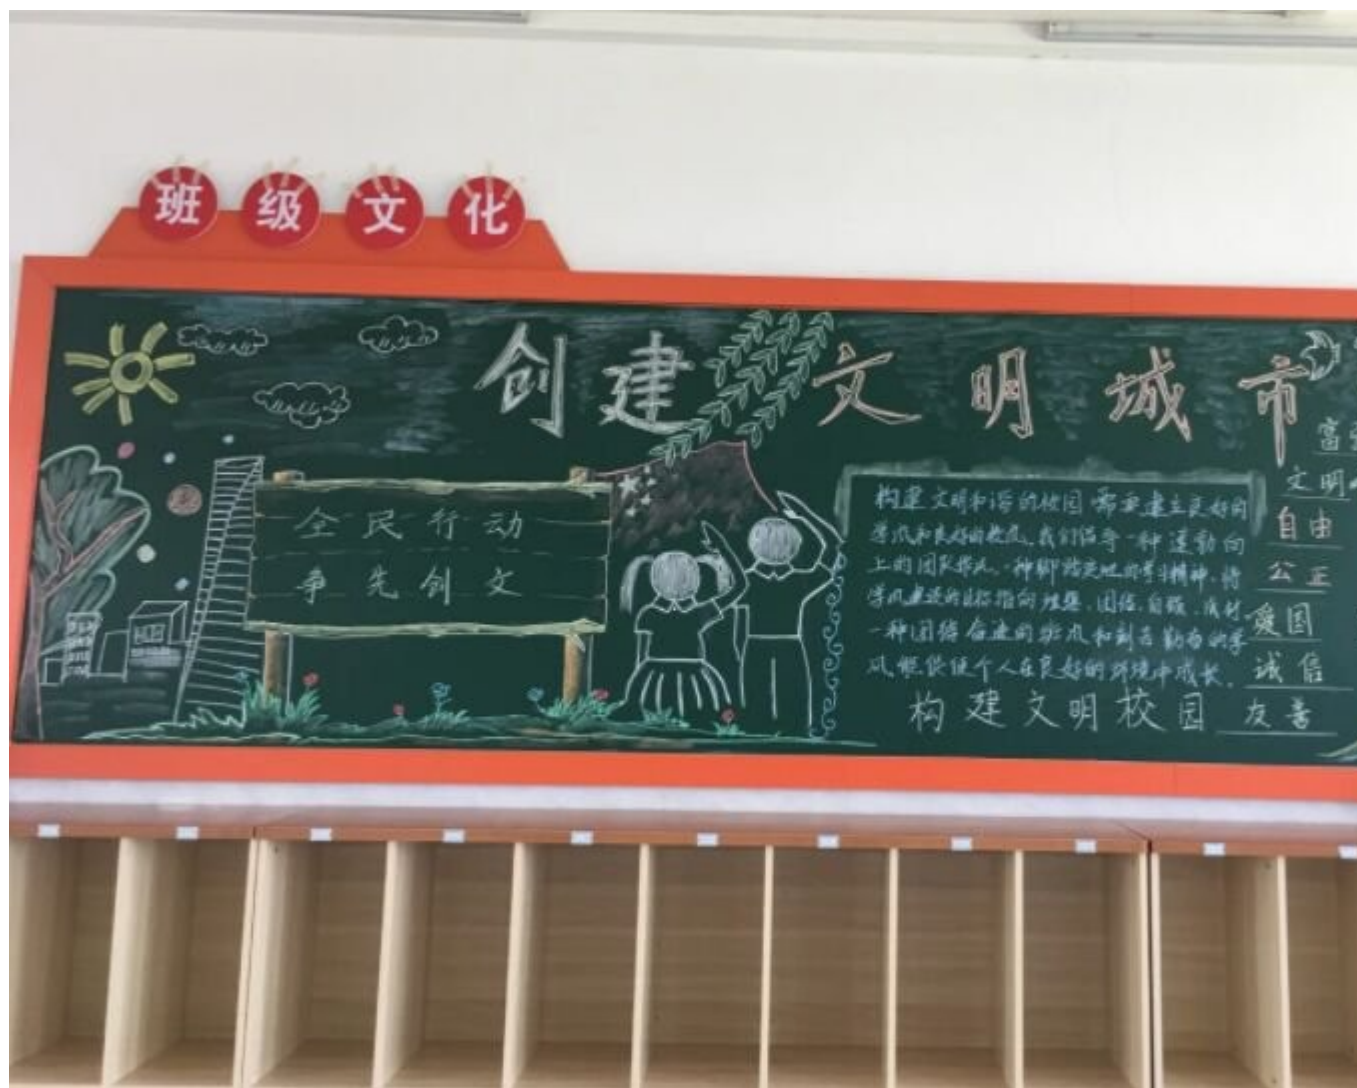 班级文化
创建文明城市
全民行动
争先创文
构建文明和谐的校园需要建立良好的
学风和良好的校风。我们倡导一种运动向
上的团队作风,一种脚踏实地的学习精神,将
学风建设的目标指向理想、团结、自强、成材。
一种团结奋进的班风和刻苦勤奋的学
风,能促使个人在良好的环境中成长。
构建文明校园
富
文明
自由
公正
爱国
诚信
友善